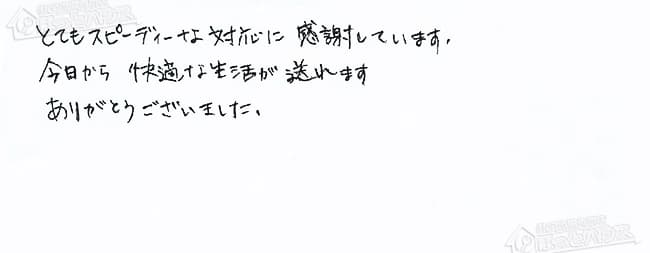 とてもスピーディーな対応に感謝しています。
今日から快適な生活が送れます
ありがとうございました。
ほっとハウス